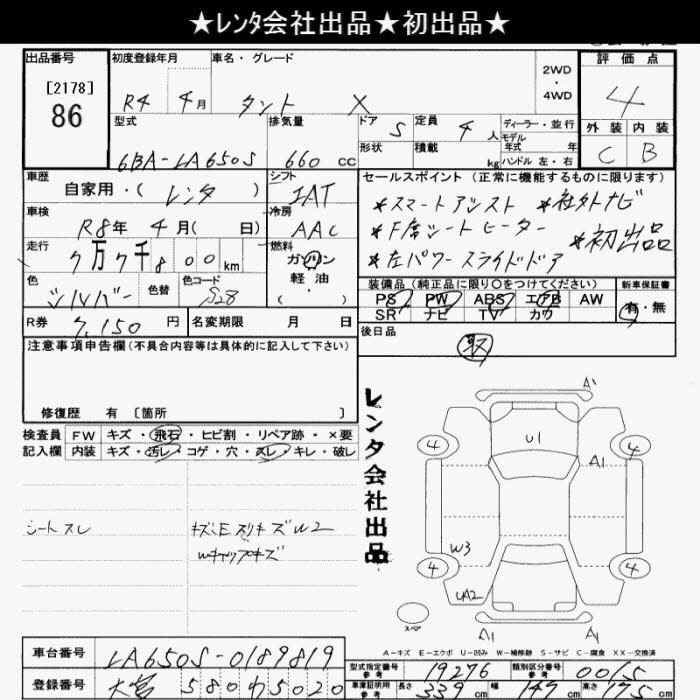 ★レンタ会社出品★初出品★
出品番号
[2178]
86
初度登録年月
R4 4月
車名・グレード
タント X
2WD
・
4WD
評価点
4
外装 内装
C B
型式
6BA-LA650S
排気量
660 cc
ドア 5
定員 4人
形状
積載 kg
ディーラー・並行
モデル
年式 年
ハンドル 左・右
車歴
自家用・( レンタ )
シフト
IAT
車検
R8年 4月( 日)
冷房
AAC
走行
7万7千800km
燃料
ガソリン
軽油
・
( )
色
シルバー
色替
色コード
S28
R券 7,150 円
名変期限 月 日
セールスポイント(正常に機能するものに限ります)
*スマートアシスト *社外ナビ
*F席シートヒーター *初出品
*左パワースライドドア
装備品(純正品に限り○をつけてください)
新車保証書
PS PW ABS エアB AW
SR ナビ TV カワ
有・無
後日品
取
注意事項申告欄(不具合内容等は具体的に記入して下さい)
修復歴 有〔箇所 〕
検査員 FW キズ・飛石・ヒビ割・リペア跡・×要
記入欄 内装 キズ・汚レ・コゲ・穴・スレ・キレ・破レ
シートスレ
キズ・E スリキズW2
Wキャップキズ
レンタ会社出品
A1
U1
A1
4 4
W3
4 4
UA2
スペア
A1 A1
A-キズ E-エクボ U-凹み W-補修跡 S-サビ C-腐食 XX-交換済
車台番号 LA650S-0189819
登録番号 大宮 580わ5020
型式指定番号
参考
19276
類別区分番号
参考
0015
車庫証明用
参考
長さ 339cm 幅 147 高さ 175cm